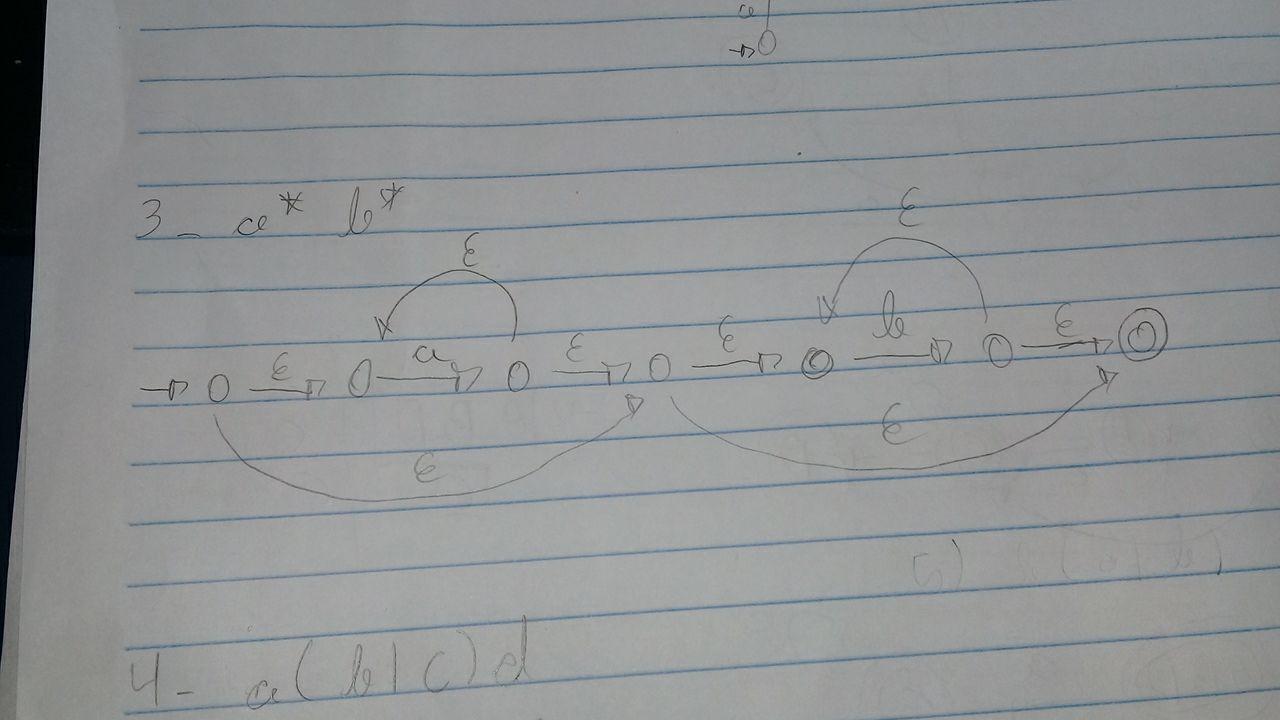 a
3- a* b*
ε ε
ε a ε ε b ε
ε ε
4- a(b|c)d